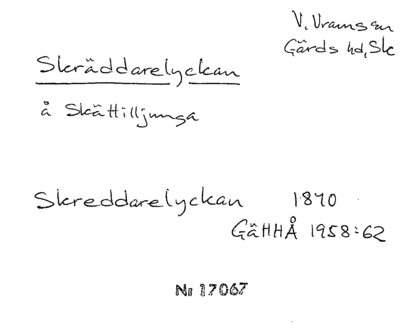 V. Vrams sn
Gärds hd, Sk
Skräddarelyckan
å Skättilljunga
Skreddarelyckan 1810
GäHHÅ 1958:62
Nr 17067